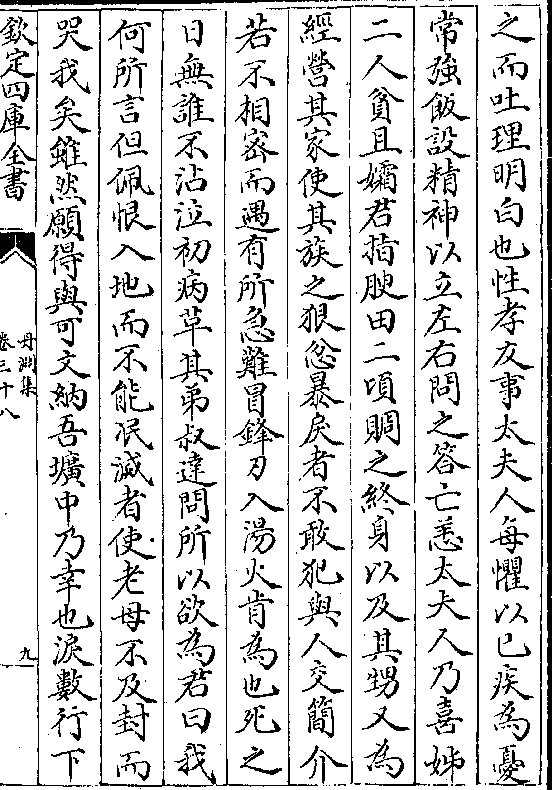 之而吐理明白也性孝友事太夫人每懼以己疾為憂
常強飯設精神以立左右問之答亡恙太夫人乃喜姊
二人貧且孀君指腴田二頃賙之終身以及其甥又為
經營其家使其族之狠忿暴戾者不敢犯與人交簡介
若不相密而遇有所急難冒鋒刃入湯火肯為也死之
日無誰不沾泣初病草其弟叔達問所以欲為君曰我
何所言但佩恨入地而不能泯滅者使老母不及封而
哭我矣雖然願得與可文納吾壙中乃幸也淚數行下
欽定四庫全書
丹淵集
卷三十八
九